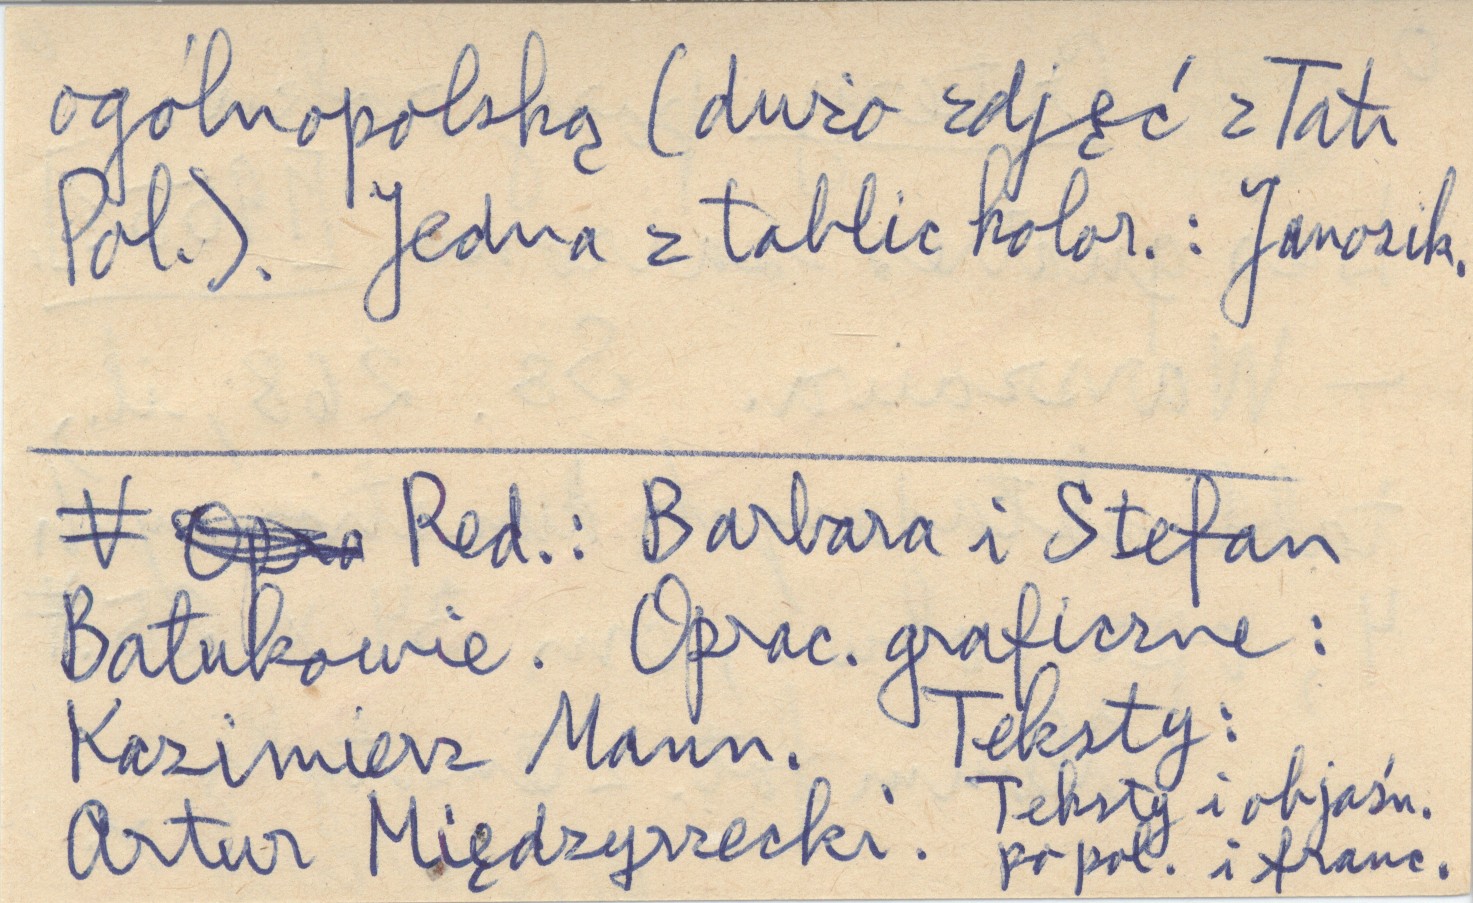 ogólnopolską (dużo zdjęć z Tatr
Pol.). Jedna z tablic kolor.: Janosik.
V Red.: Barbara i Stefan
Bałukowie. Oprac. graficzne:
Kazimierz Mann. Teksty:
Artur Międzyrzecki. Teksty i objaśn.
po pol. i franc.